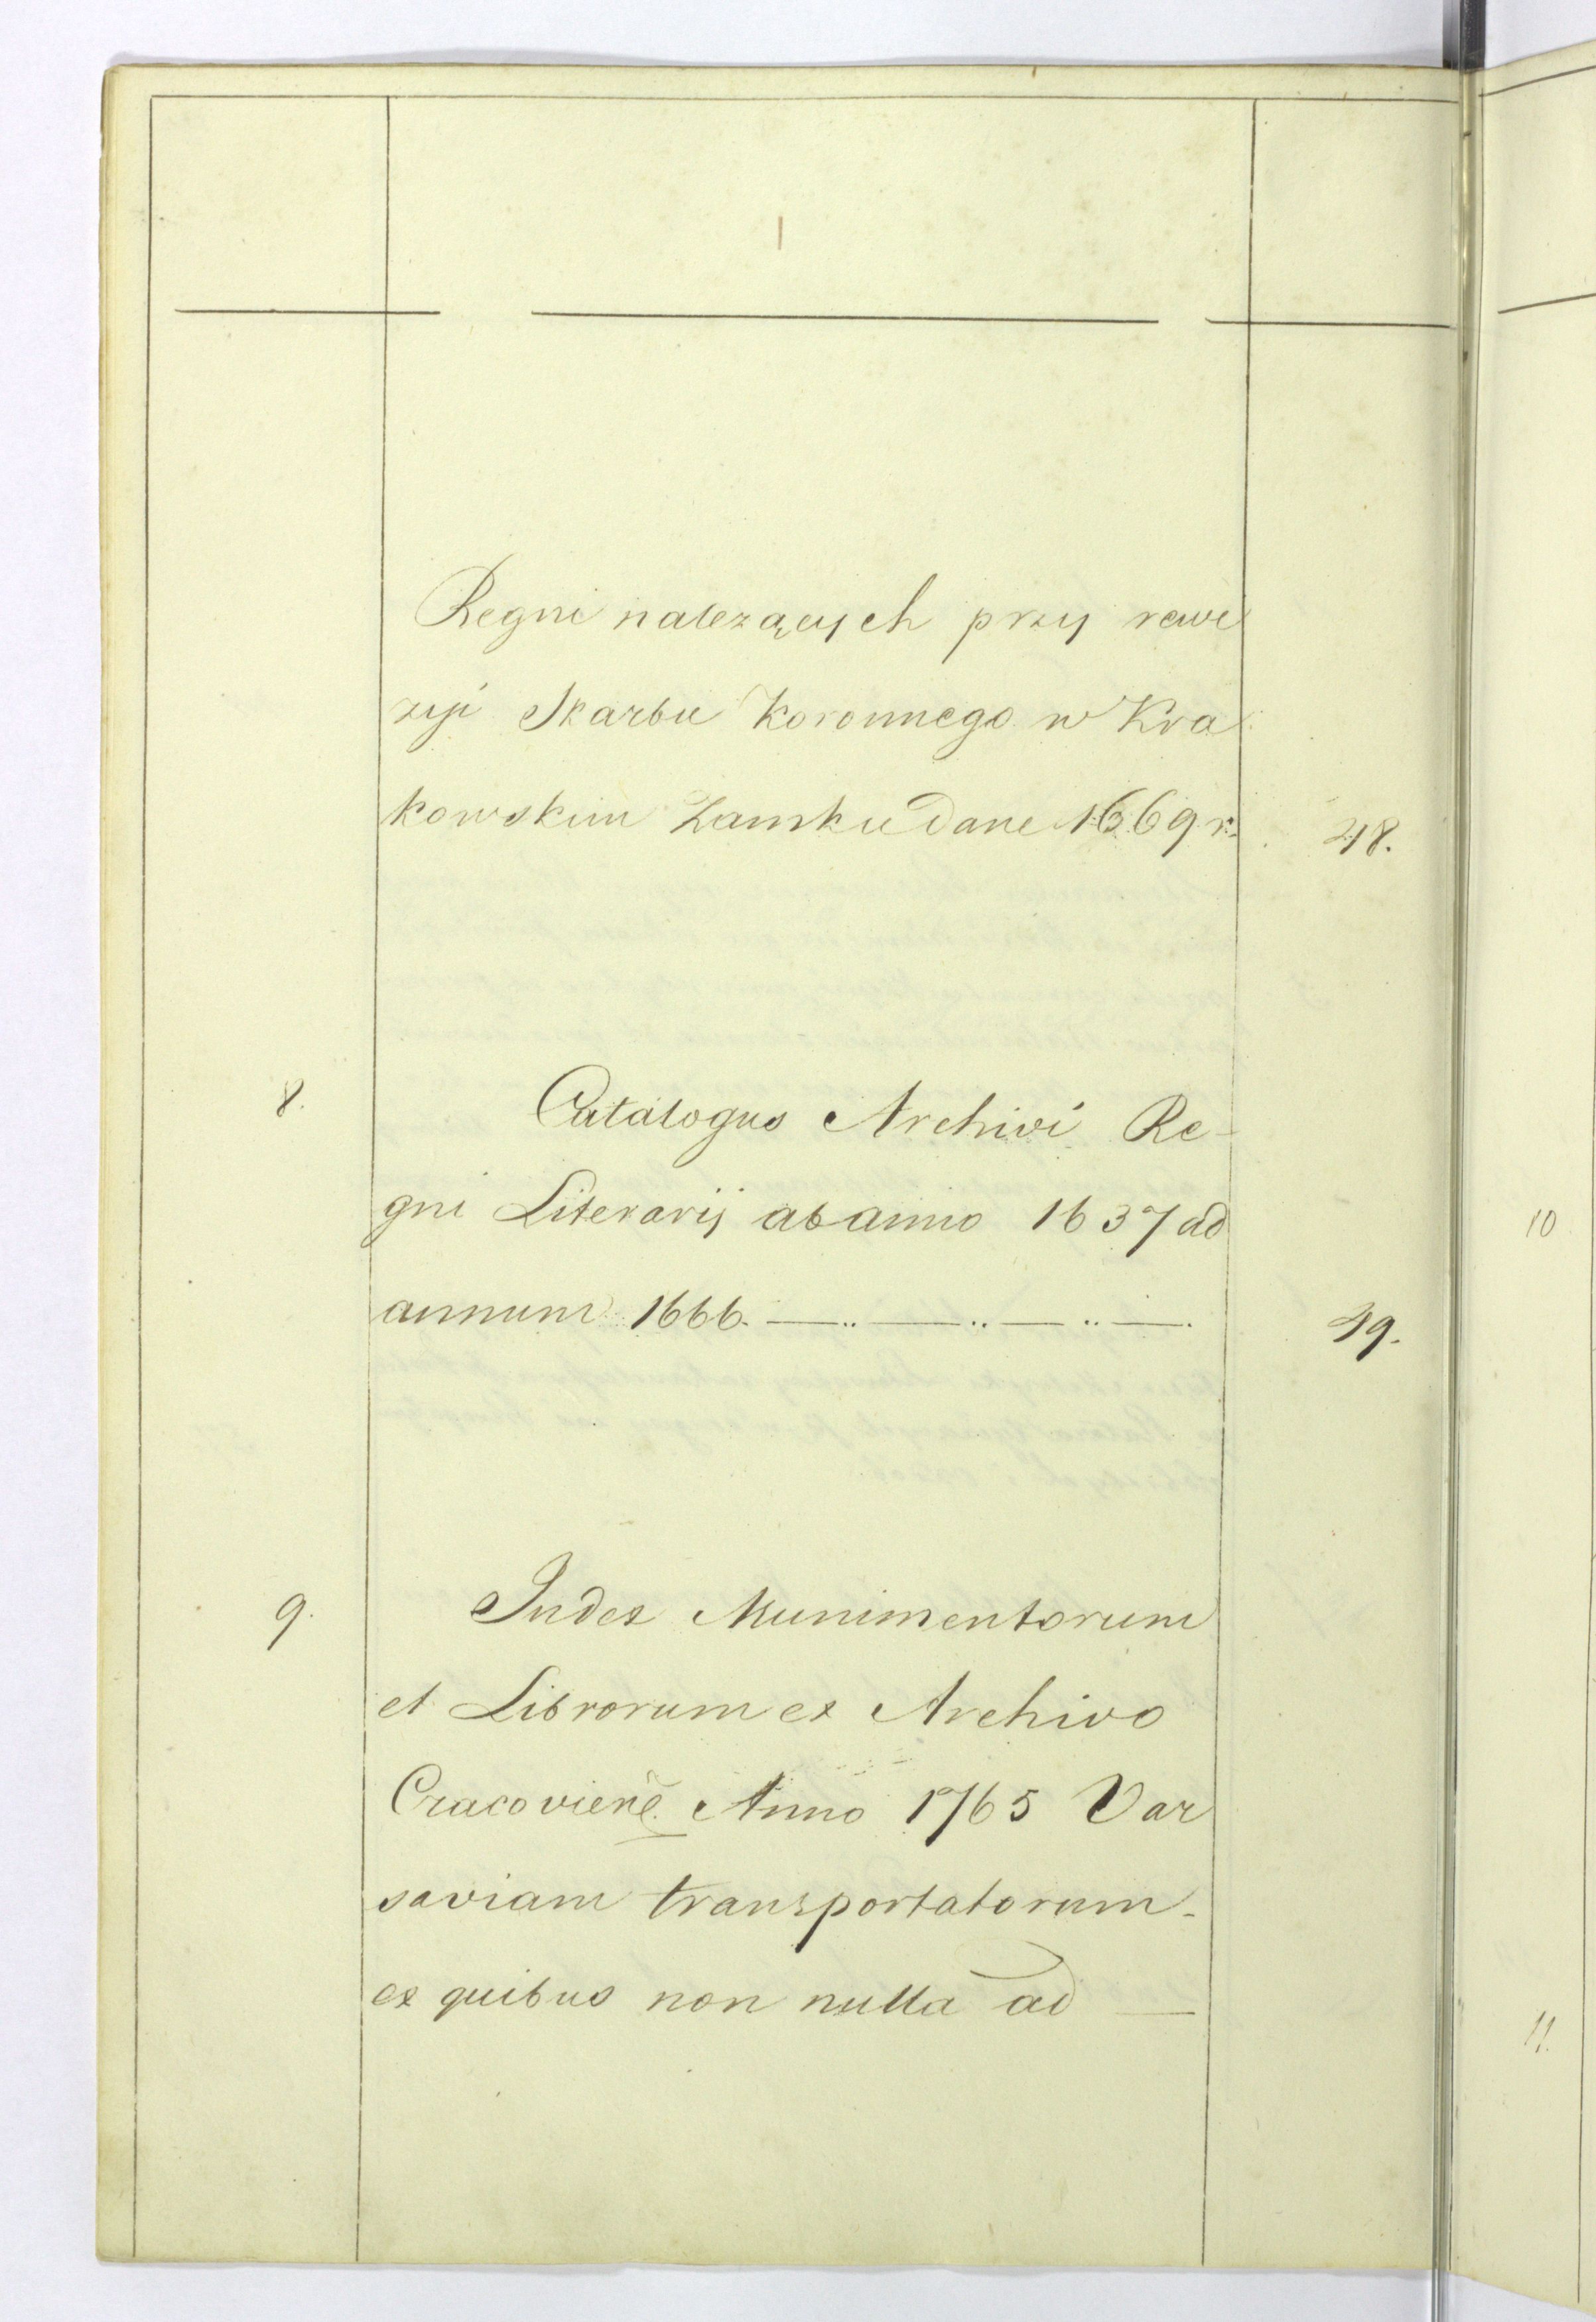 Regni należących przy rewi
zyi Skarbu Koronnego w Kra
kowskim Zamku Dane 1669 r. 48.
8. Catalogus Archivi Re-
gni Literarij ab anno 1637 ad
annum 1666. —..—..—..—. 49.
9. Index Munimentorum
et Librorum ex Archivo
Cracovienẽ. Anno 1765 Var
saviam transportatorum-
ex quibus non nulla ad —
10
11.